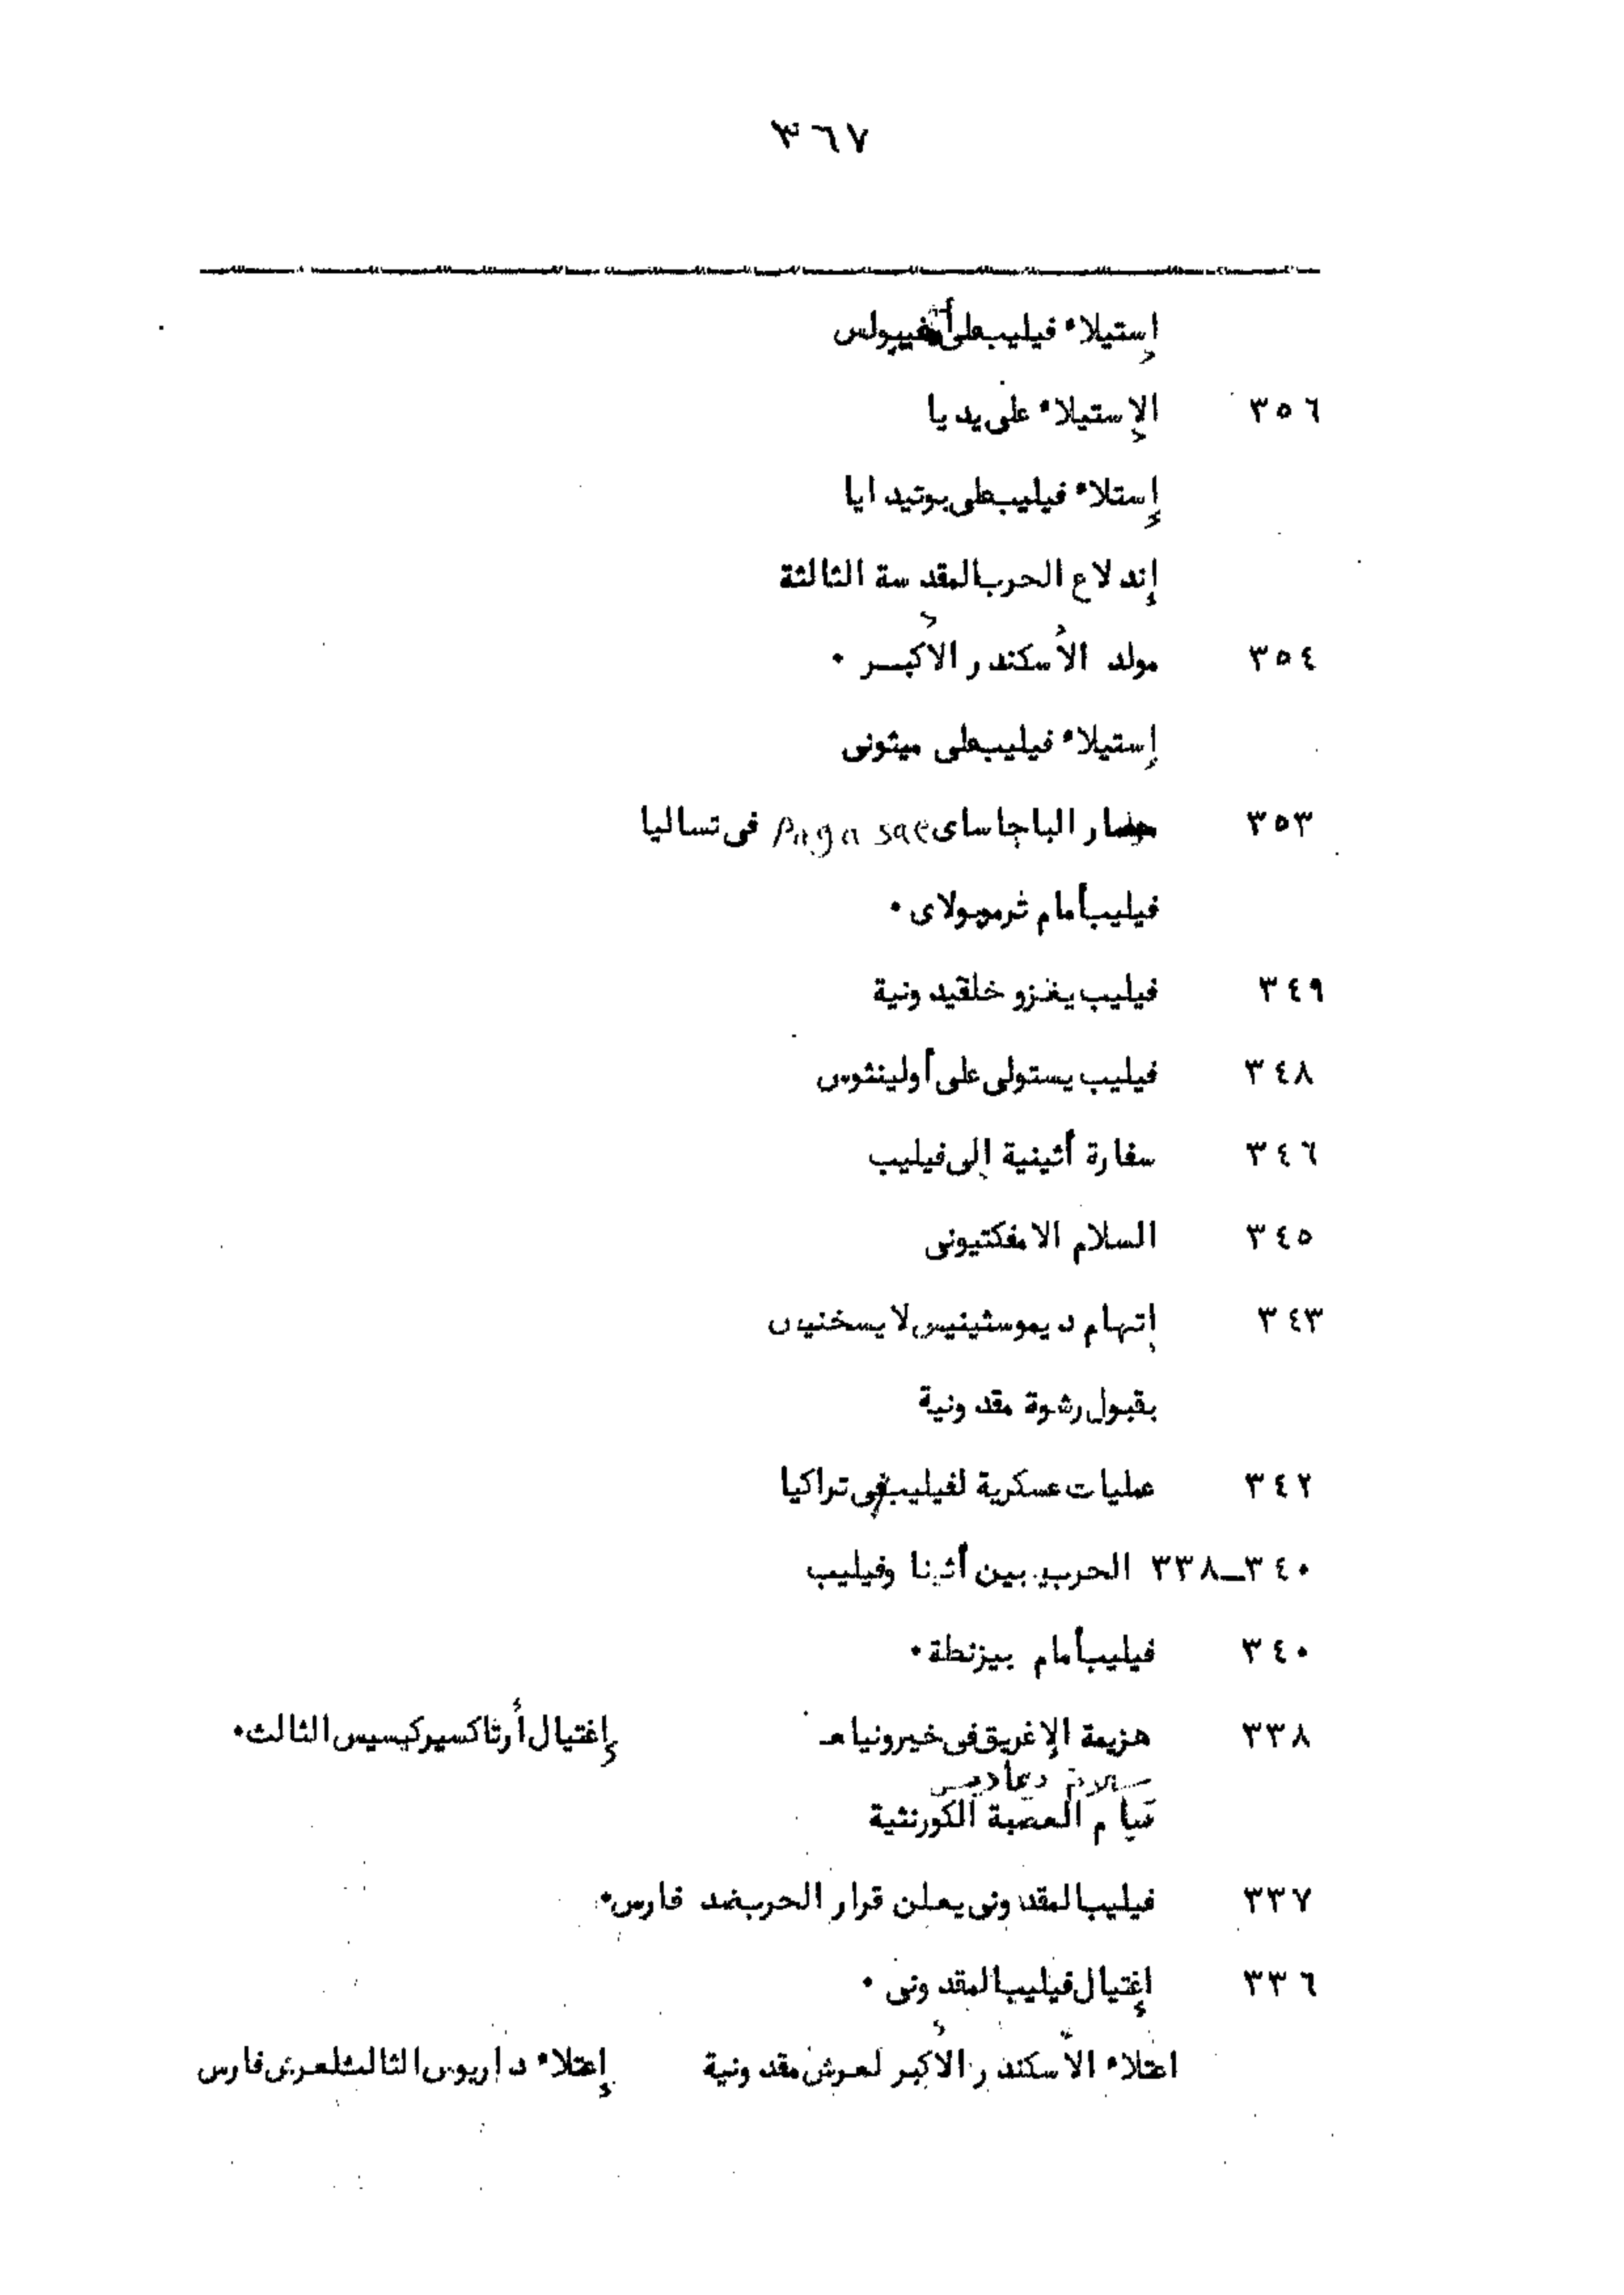 ٣٦٧
إستيلاء فيليب على أمفيبولس
٣٥٦ الإستيلاء على يديا
إستلاء فيليب على بوتيدايا
إندلاع الحرب المقدسة الثالثة
٣٥٤ مولد الأسكندر الأكبر .
إستيلاء فيليب على ميثونى
٣٥٣ حصار الباجاساى Pagasae فى تساليا
فيليب أمام ثرموبولاى .
٣٤٩ فيليب يغزو خلقيدونية
٣٤٨ فيليب يستولى على أولينثوس
٣٤٦ سفارة أثينية إلى فيليب
٣٤٥ السلام الامفكتيونى
٣٤٣ إتهام ديموسثينيس لايسخنيس
بقبول رشوة مقدونية
٣٤٢ عمليات عسكرية لفيليب فى تراكيا
٣٤٠ــ٣٣٨ الحرب بين أثينا وفيليب
٣٤٠ فيليب أمام بيزنطة .
٣٣٨ هزيمة الإغريق فى خيرونيا إغتيال أرتاكسيركسيس الثالث .
سلام ديماديس
قيام العصبة الكورنثية
٣٣٧ فيليب المقدونى يعلن قرار الحرب ضد فارس .
٣٣٦ إغتيال فيليب المقدونى .
اعتلاء الأسكندر الأكبر لعرش مقدونية إعتلاء داريوس الثالث لعرش فارس